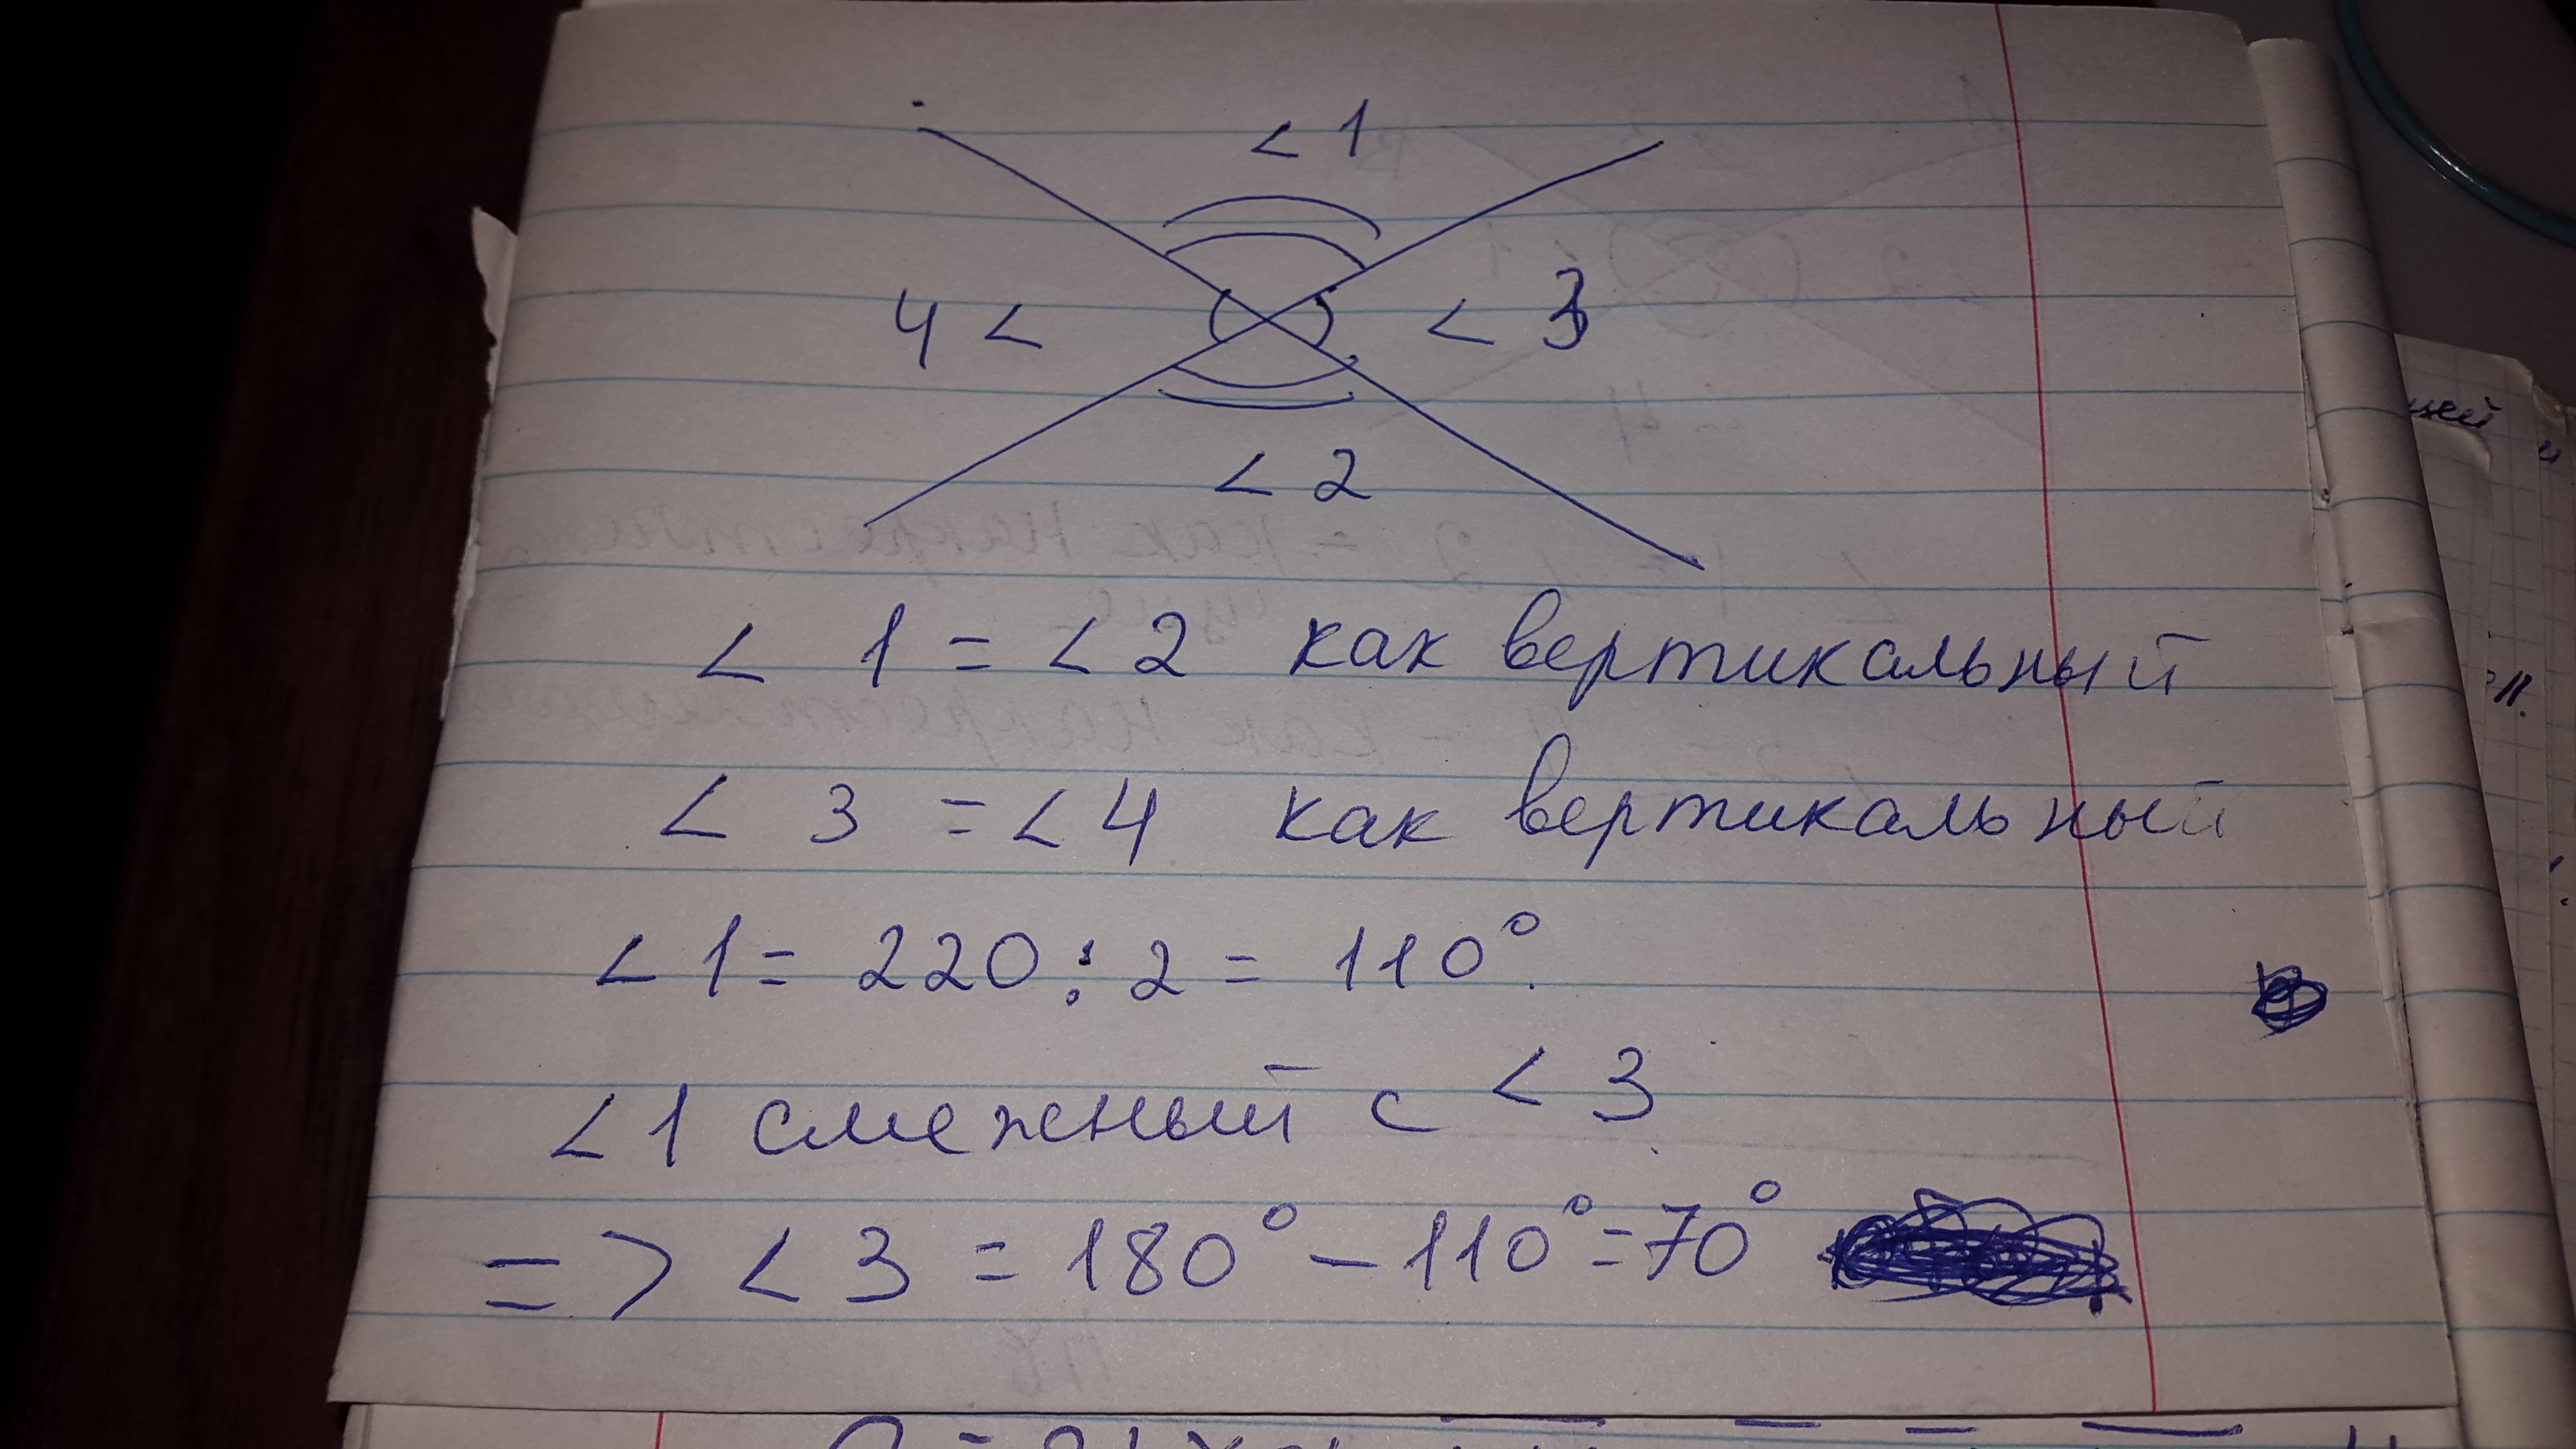 < 1
4 <
< 3
< 2
< 1 = < 2 как вертикальный
< 3 = < 4 как вертикальный
< 1 = 220 : 2 = 110°.
< 1 смежный с < 3
=> < 3 = 180° - 110° = 70°
щей